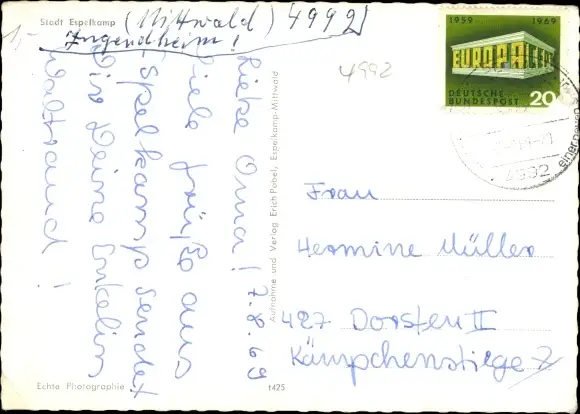 Stadt Espelkamp
(Mittwald) 4992
Jugendheim!
Liebe Oma! 7.8.69
Viele Grüße aus
Espelkamp sendet
Dir Deine Enkelin
Waltraud!
Echte Photographie
1425
Aufnahme und Verlag Erich Pobel, Espelkamp-Mittwald
4992
1959 1969
EUROPA CEPT
DEUTSCHE
BUNDESPOST 20
4992
Frau
Hermine Müller
427 Dorsten II
Kämpchenstiege 7